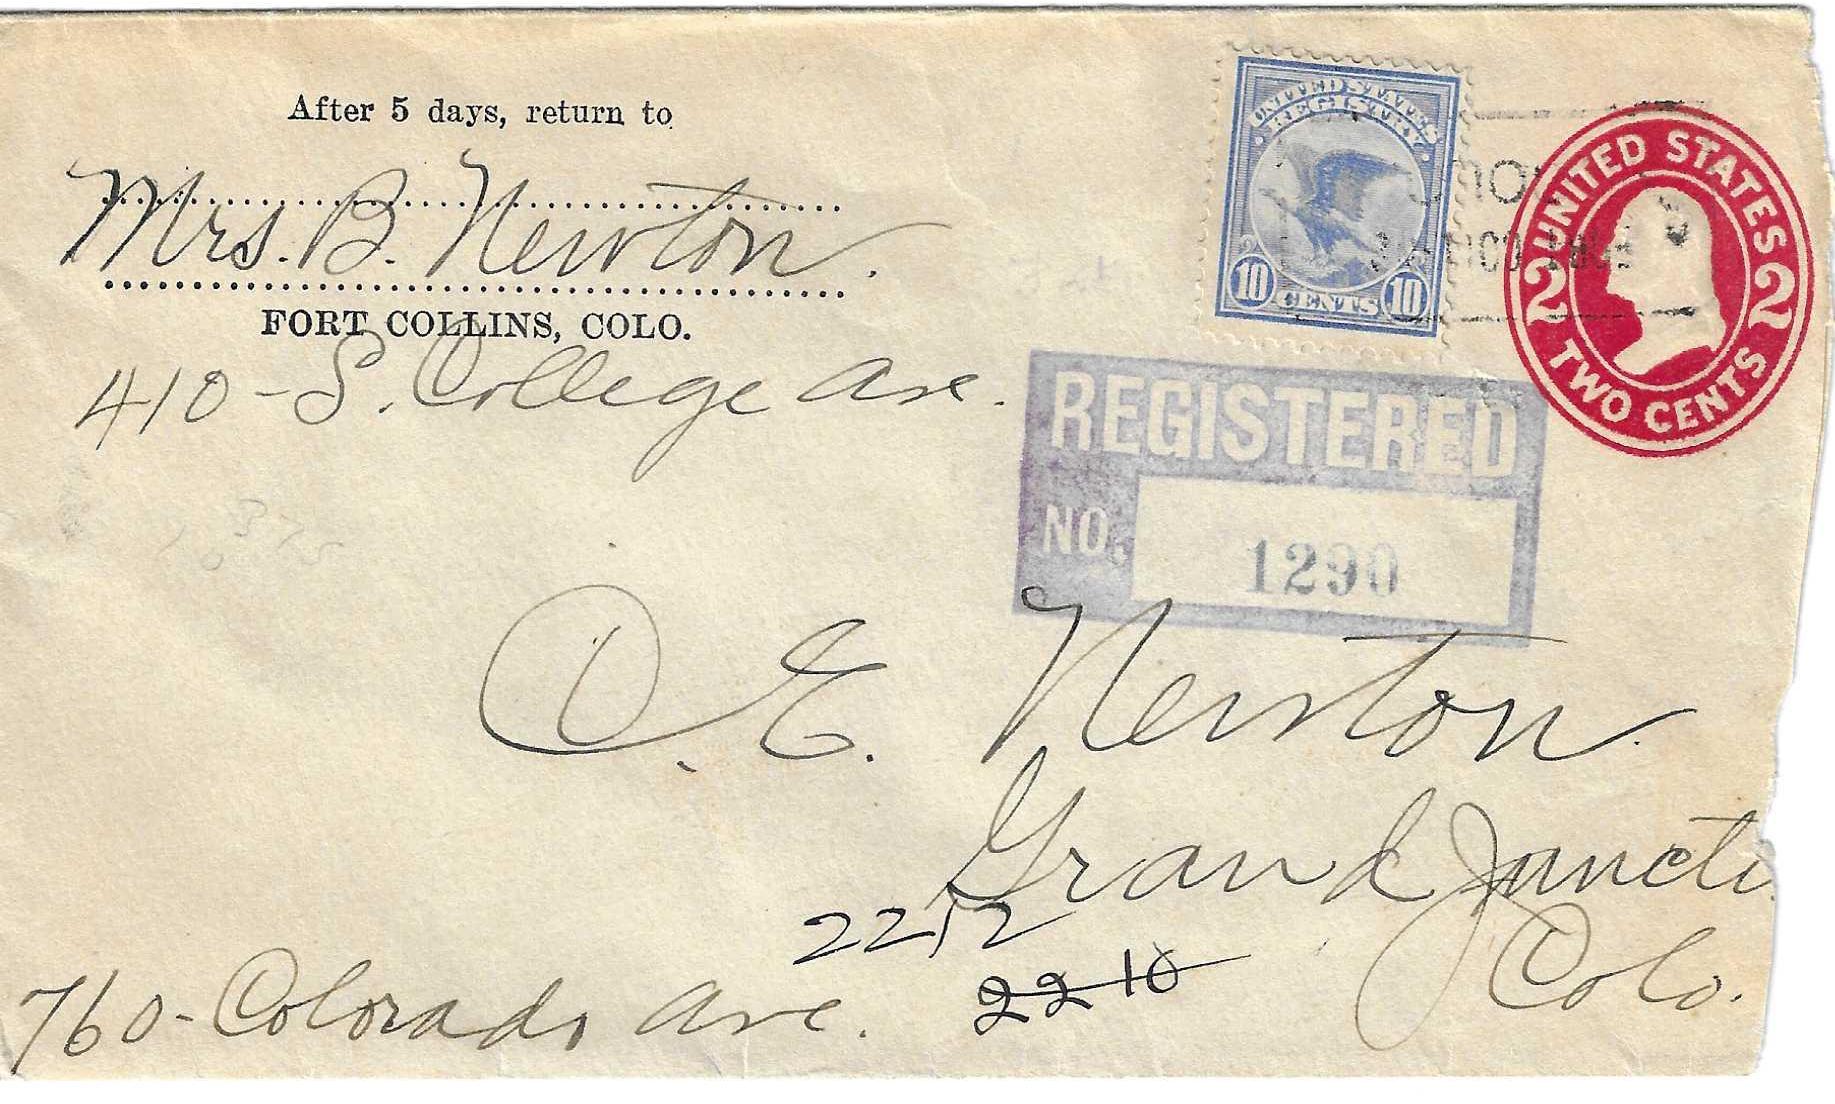 After 5 days, return to
Mrs. B. Newton.
FORT COLLINS, COLO.
410 - S. College Ave.
UNITED STATES
REGISTRY
10 CENTS 10
UNITED STATES
2 2
TWO CENTS
REGISTERED
NO. 1290
O. E. Newton.
Grand Juncti
Colo.
2212
2210
760 - Colorado Ave.